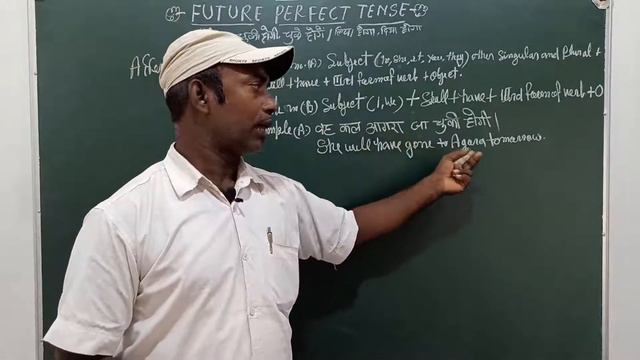 FUTURE PERFECT TENSE
चुकी होगी चुके होंगे / लिया होगा, दिया होगा
Affer (A) Subject (he, she, it, you, they) other Singular and Plural +
have + IIIrd form of verb + object.
(B) Subject (I, we) + Shall + have + IIIrd form of verb + O
(A) वह कल आगरा जा चुकी होगी।
She will have gone to Agara tomorrow.